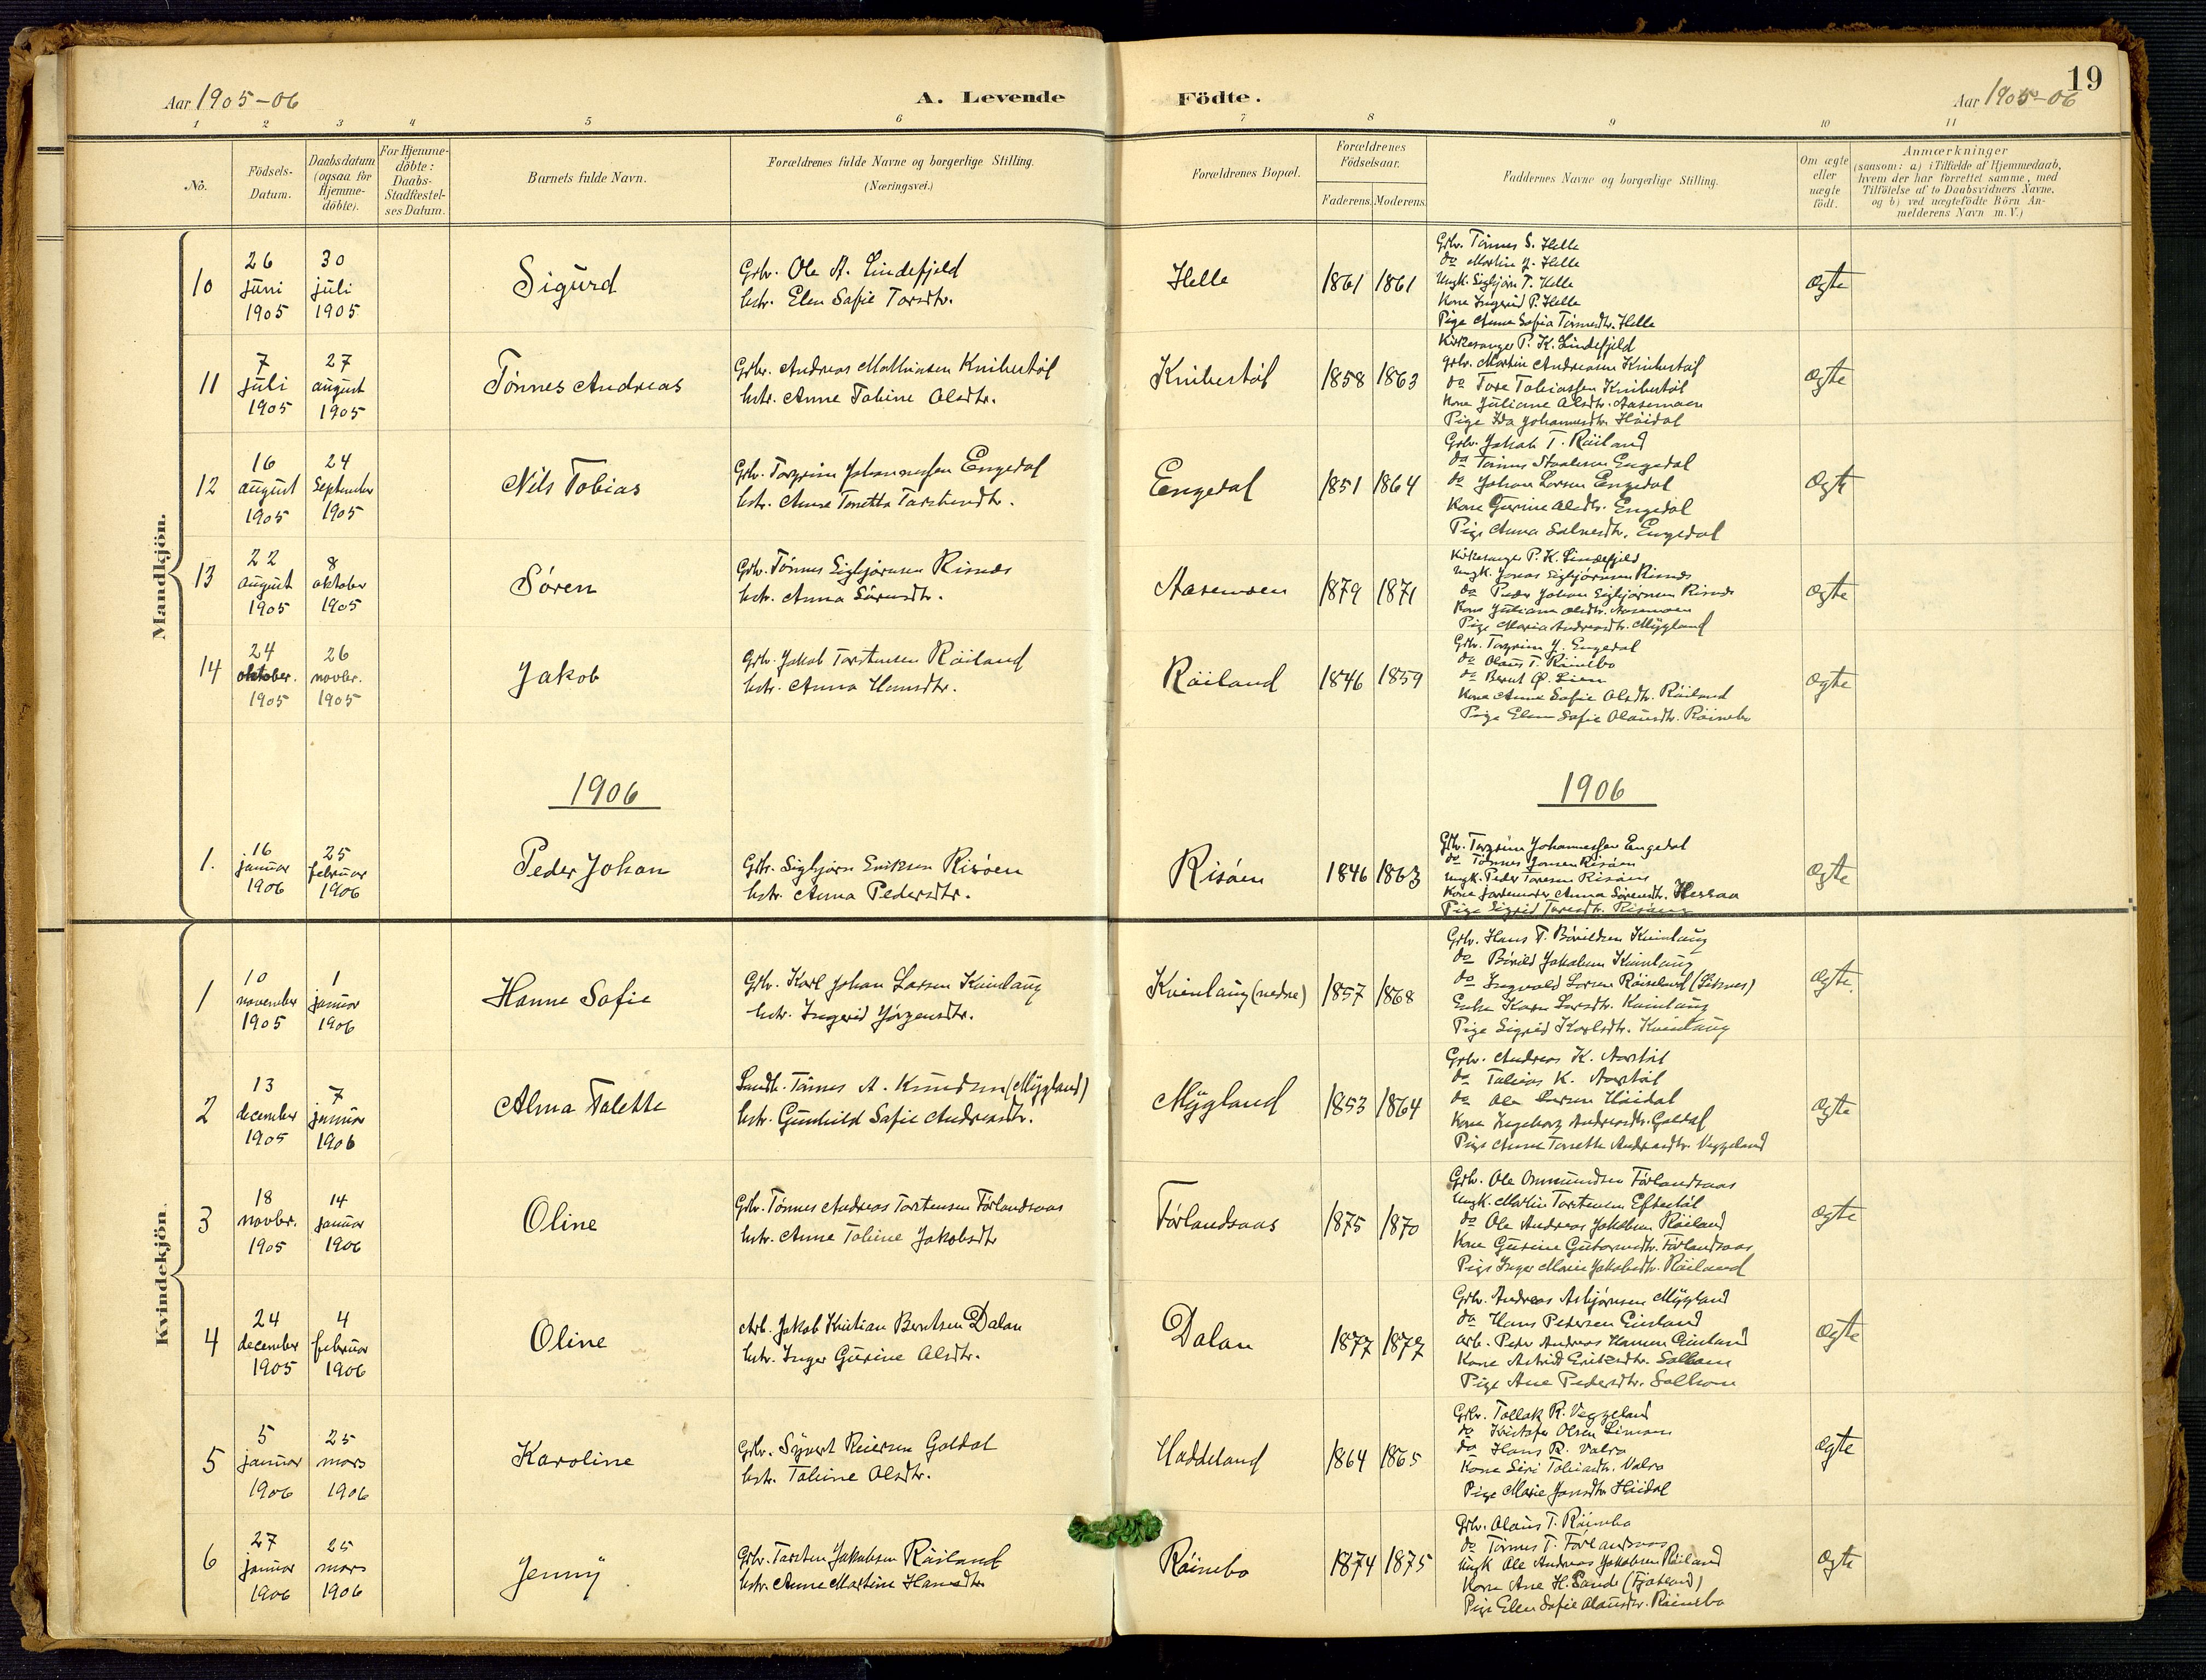 19
Aar 1905-06
A. Levende Födte.
Aar 1905-06
1 2 3 4 5 6 7 8 9 10 11
No.
Födsels-Datum.
Daabsdatum (ogsaa for Hjemme-döbte).
For Hjemme-döbte: Daabs-Stadfæstel-ses Datum.
Barnets fulde Navn.
Forældrenes fulde Navne og borgerlige Stilling.
(Næringsvei.)
Forældrenes Bopæl.
Forældrenes Födselsaar.
Faderens. Moderens.
Faddernes Navne og borgerlige Stilling.
Om ægte eller uægte födt.
Anmærkninger
(saasom: a) i Tilfælde af Hjemmedaab,
hvem der har forrettet samme, med
Tilföielse af to Daabsvidners Navne,
og b) ved uægtefödte Börn An-
melderens Navn m. V.)
Mandkjön.
10
26 juni 1905
30 juli 1905
Sigurd
Grbr. Ole A. Lindefjeld
hstr. Elen Sofie Torsdtr.
Helle
1861 1861
Grbr. Tönnes S. Helle
do Martin J. Helle
Ungk. Sigbjörn T. Helle
Kone Ingerid P. Helle
Pige Anna Sofia Tönnesdtr. Helle
ægte
11
7 juli 1905
27 august 1905
Tönnes Andreas
Grbr. Andreas Mathiasen Knibestöl
hstr. Anne Tobine Olsdtr.
Knibestöl
1858 1863
Kirkesanger P. K. Lindefjeld
Grbr. Martin Andreasen Knibestöl
do Tore Tobiassen Knibestöl
Kone Juliane Olsdtr. Aasemoen
Pige Ida Johannesdtr. Höidal
ægte
12
16 august 1905
24 September 1905
Nils Tobias
Grbr. Torgrim Johannessen Engedal
hstr. Anne Tonetta Torstensdtr.
Engedal
1851 1864
Grbr. Jakob T. Röiland
do Tönnes Staalesen Engedal
do Johan Larsen Engedal
Kone Gurine Olsdtr. Engedal
Pige Anna Salvesdtr. Engedal
ægte
13
22 august 1905
8 oktober 1905
Sören
Grbr. Tönnes Sigbjörnsen Risnes
hstr. Anna Sörensdtr.
Aasemoen
1879 1871
Kirkesanger P. K. Lindefjeld
Ungk. Jonas Sigbjörnsen Risnes
do Peder Johan Sigbjörnsen Risnes
Kone Juliane Olsdtr. Aasemoen
Pige Maria Andreasdtr. Mygland
ægte
14
24 oktober. 1905
26 novbr. 1905
Jakob
Grbr. Jakob Torstensen Röiland
hstr. Anna Hansdtr.
Röiland
1846 1859
Grbr. Torgrim J. Engedal
do Olaus T. Röinebo
do Bernt O. Lien
Kone Anne Sofie Olsdtr. Röiland
Pige Elen Sofie Olausdtr. Röinebo
ægte
1906
1906
1.
16 januar 1906
25 februar 1906
Peder Johan
Grbr. Sigbjörn Eriksen Risöen
hstr. Anna Pedersdtr.
Risöen
1846 1863
Grbr. Torgrim Johannessen Engedal
do Tönnes Jonsen Risöen
Ungk. Peder Toresen Risöen
Kone jordemoder Anna Sörensdtr. Hessaa
Pige Sigrid Toresdtr. Risöen
ægte
Kvindekjön.
1
10 november 1905
1 januar 1906
Hanne Sofie
Grbr. Karl Johan Larsen Kvinlaug
hstr. Ingerid Jörgensdtr.
Kvinlaug (nedre)
1857 1868
Grbr. Hans T. Bövildsen Kvinlaug
do Bövild Jakobsen Kvinlaug
do Ingvald Larsen Röiseland (Liknes)
Enke Karn Larsdtr. Kvinlaug
Pige Sigrid Karlsdtr. Kvinlaug
ægte.
2
13 december 1905
7 januar 1906
Alma Talette
Landh. Tönnes A. Knudsen (Mygland)
hstr. Gunhild Sofie Andreasdtr.
Mygland
1853 1864
Grbr. Andreas K. Aarstöl
do Tobias K. Aarstöl
do Ole Larsen Höidal
Kone Ingeborg Andreasdtr. Galdal
Pige Anne Tonette Andreasdtr. Veggeland
ægte
3
18 novbr. 1905
14 januar 1906
Oline
Grbr. Tönnes Andreas Torstensen Förlandsaas
hstr. Anne Tobine Jakobsdtr
Förlandsaas
1875 1870
Grbr. Ole Ommundsen Förlandsaas
Ungk. Martin Torstensen Eftestöl
do Ole Andreas Jakobsen Röiland
Kone Gurine Gutormsdtr. Förlandsaas
Pige Inger Marie Jakobsdtr. Röiland
ægte
4
24 december 1905
4 februar 1906
Oline
Arb. Jakob Kristian Berntsen Dalan
hstr. Inger Gurine Olsdtr.
Dalan
1877 1877
Grbr. Andreas Asbjörnsen Mygland
do Hans Petersen Einland
Arb. Peter Andreas Hansen Einland
Kone Astrid Eriksdtr. Solhom
Pige Ane Pedersdtr. Solhom
ægte
5
5 januar 1906
25 mars 1906
Karoline
Grbr. Syvert Reiersen Galdal
hstr. Tobine Olsdtr.
Haddeland
1864 1865
Grbr. Tollak R. Veggeland
do Kristofer Olsen Simson
do Hans R. Valra
Kone Siri Tobiasdtr. Valra
Pige Marie Jonsdtr. Höidal
ægte
6
27 januar 1906
25 mars 1906
Jenny
Grbr. Torsten Jakobsen Röiland
hstr. Anne Martine Hansdtr
Röinebo
1874 1875
Grbr. Olaus T. Röinebo
do Tönnes T. Förlandsaas
Ungk Ole Andreas Jakobsen Röiland
Kone Ane H. Sande (Fjotland)
Pige Elen Sofie Olausdtr. Röinebo
ægte